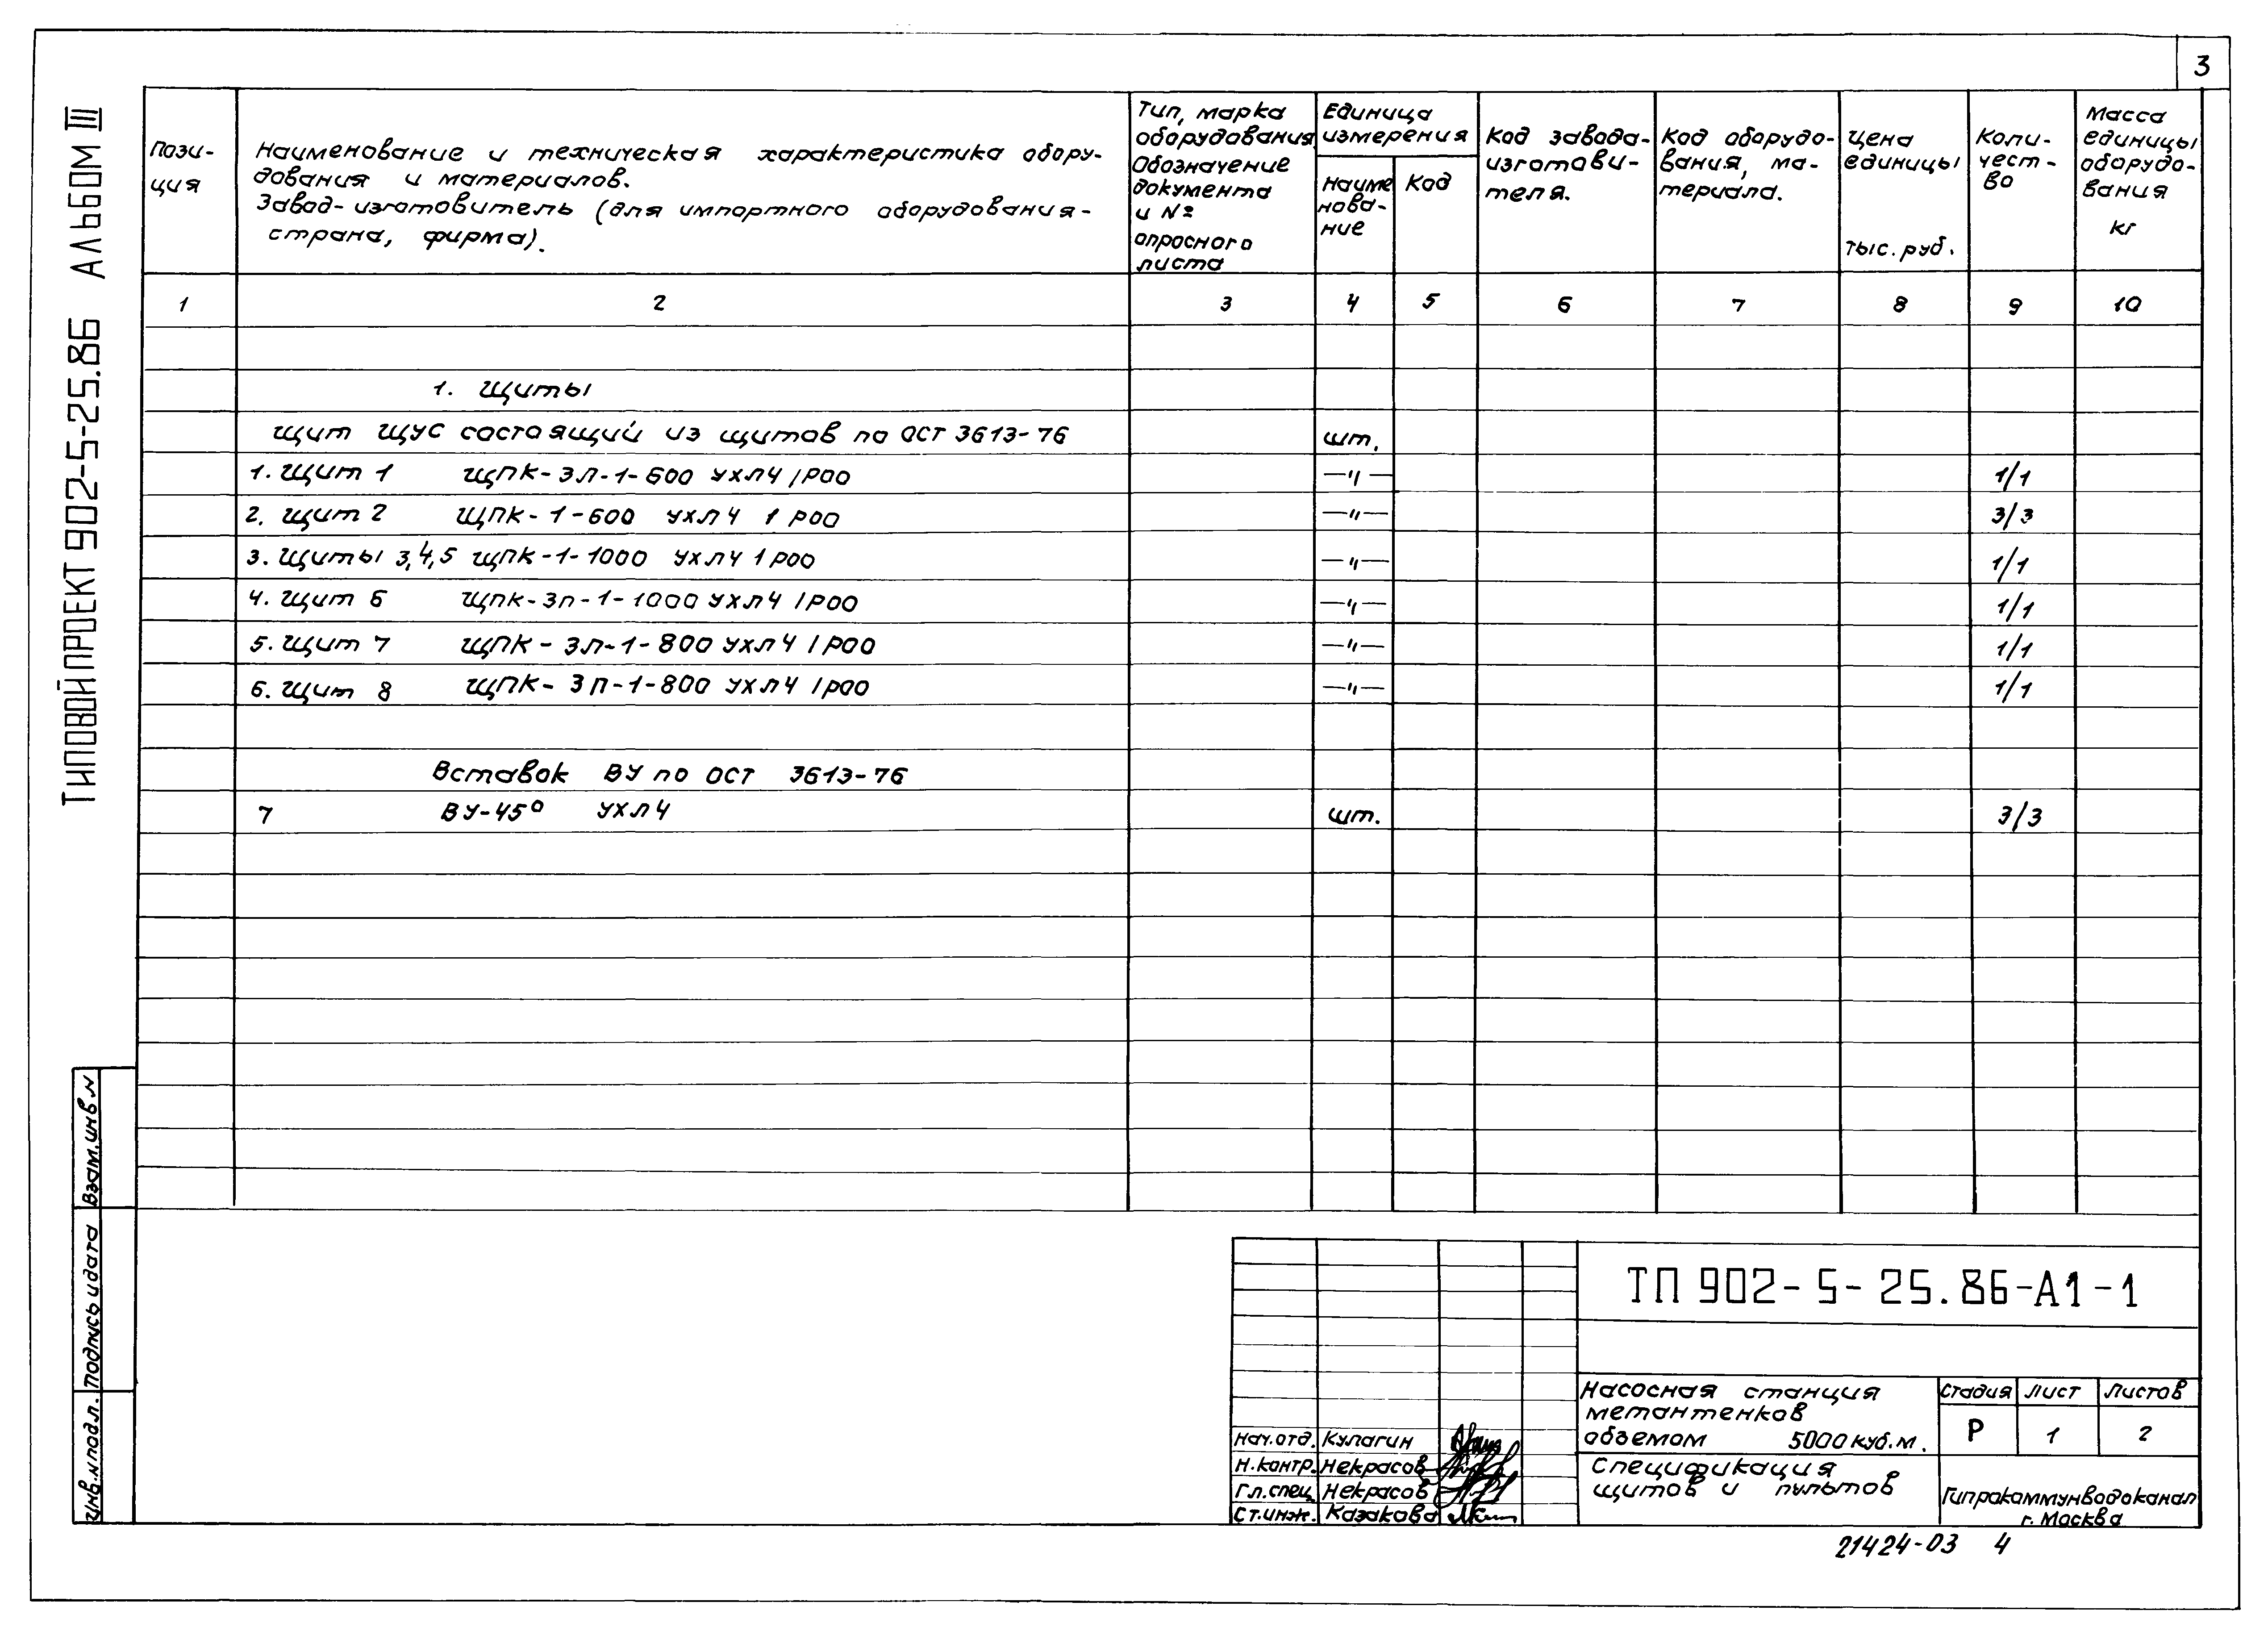 3
ТИПОВОЙ ПРОЕКТ 902-5-25.86 АЛЬБОМ III
Пози-
ция
Наименование и техническая характеристика обору-
дования и материалов.
Завод-изготовитель (для импортного оборудования-
страна, фирма).
Тип, марка
оборудования
Обозначение
документа
и №
опросного
листа
Единица
измерения
Наиме
нова-
ние
Код
Код завода-
изготови-
теля.
Код оборудо-
вания, ма-
териала.
Цена
единицы
тыс. руб.
Коли-
чест-
во
Масса
единицы
оборудо-
вания
кг
1 2 3 4 5 6 7 8 9 10
1. Щиты
щит ЩУС состоящий из щитов по ОСТ 3613-76 шт.
1. Щит 1 ЩПК-ЗЛ-1-600 УХЛ4 IP00 —"— 1/1
2. Щит 2 ЩПК-1-600 УХЛ4 IP00 —"— 3/3
3. Щиты 3,4,5 ЩПК-1-1000 УХЛ4 IP00 —"— 1/1
4. Щит 6 ЩПК-Зп-1-1000 УХЛ4 IP00 —"— 1/1
5. Щит 7 ЩПК-ЗЛ-1-800 УХЛ4 IP00 —"— 1/1
6. Щит 8 ЩПК-ЗП-1-800 УХЛ4 IP00 —"— 1/1
Вставок ВУ по ОСТ 3613-76
7 ВУ-45° УХЛ4 шт. 3/3
Взам.инв N
Подпись и дата
Инв.N подл.
ТП 902-5-25.86-А1-1
Насосная станция
метантенков
обземом 5000 куб.м.
Стадия Лист Листов
Р 1 2
Спецификация
щитов и пультов
Гипрокоммунводоканал
г. Москва
Нач.отд. Кулагин
Н.контр. Некрасов
Гл.спец Некрасов
Ст.инж. Казакова
21424-03 4